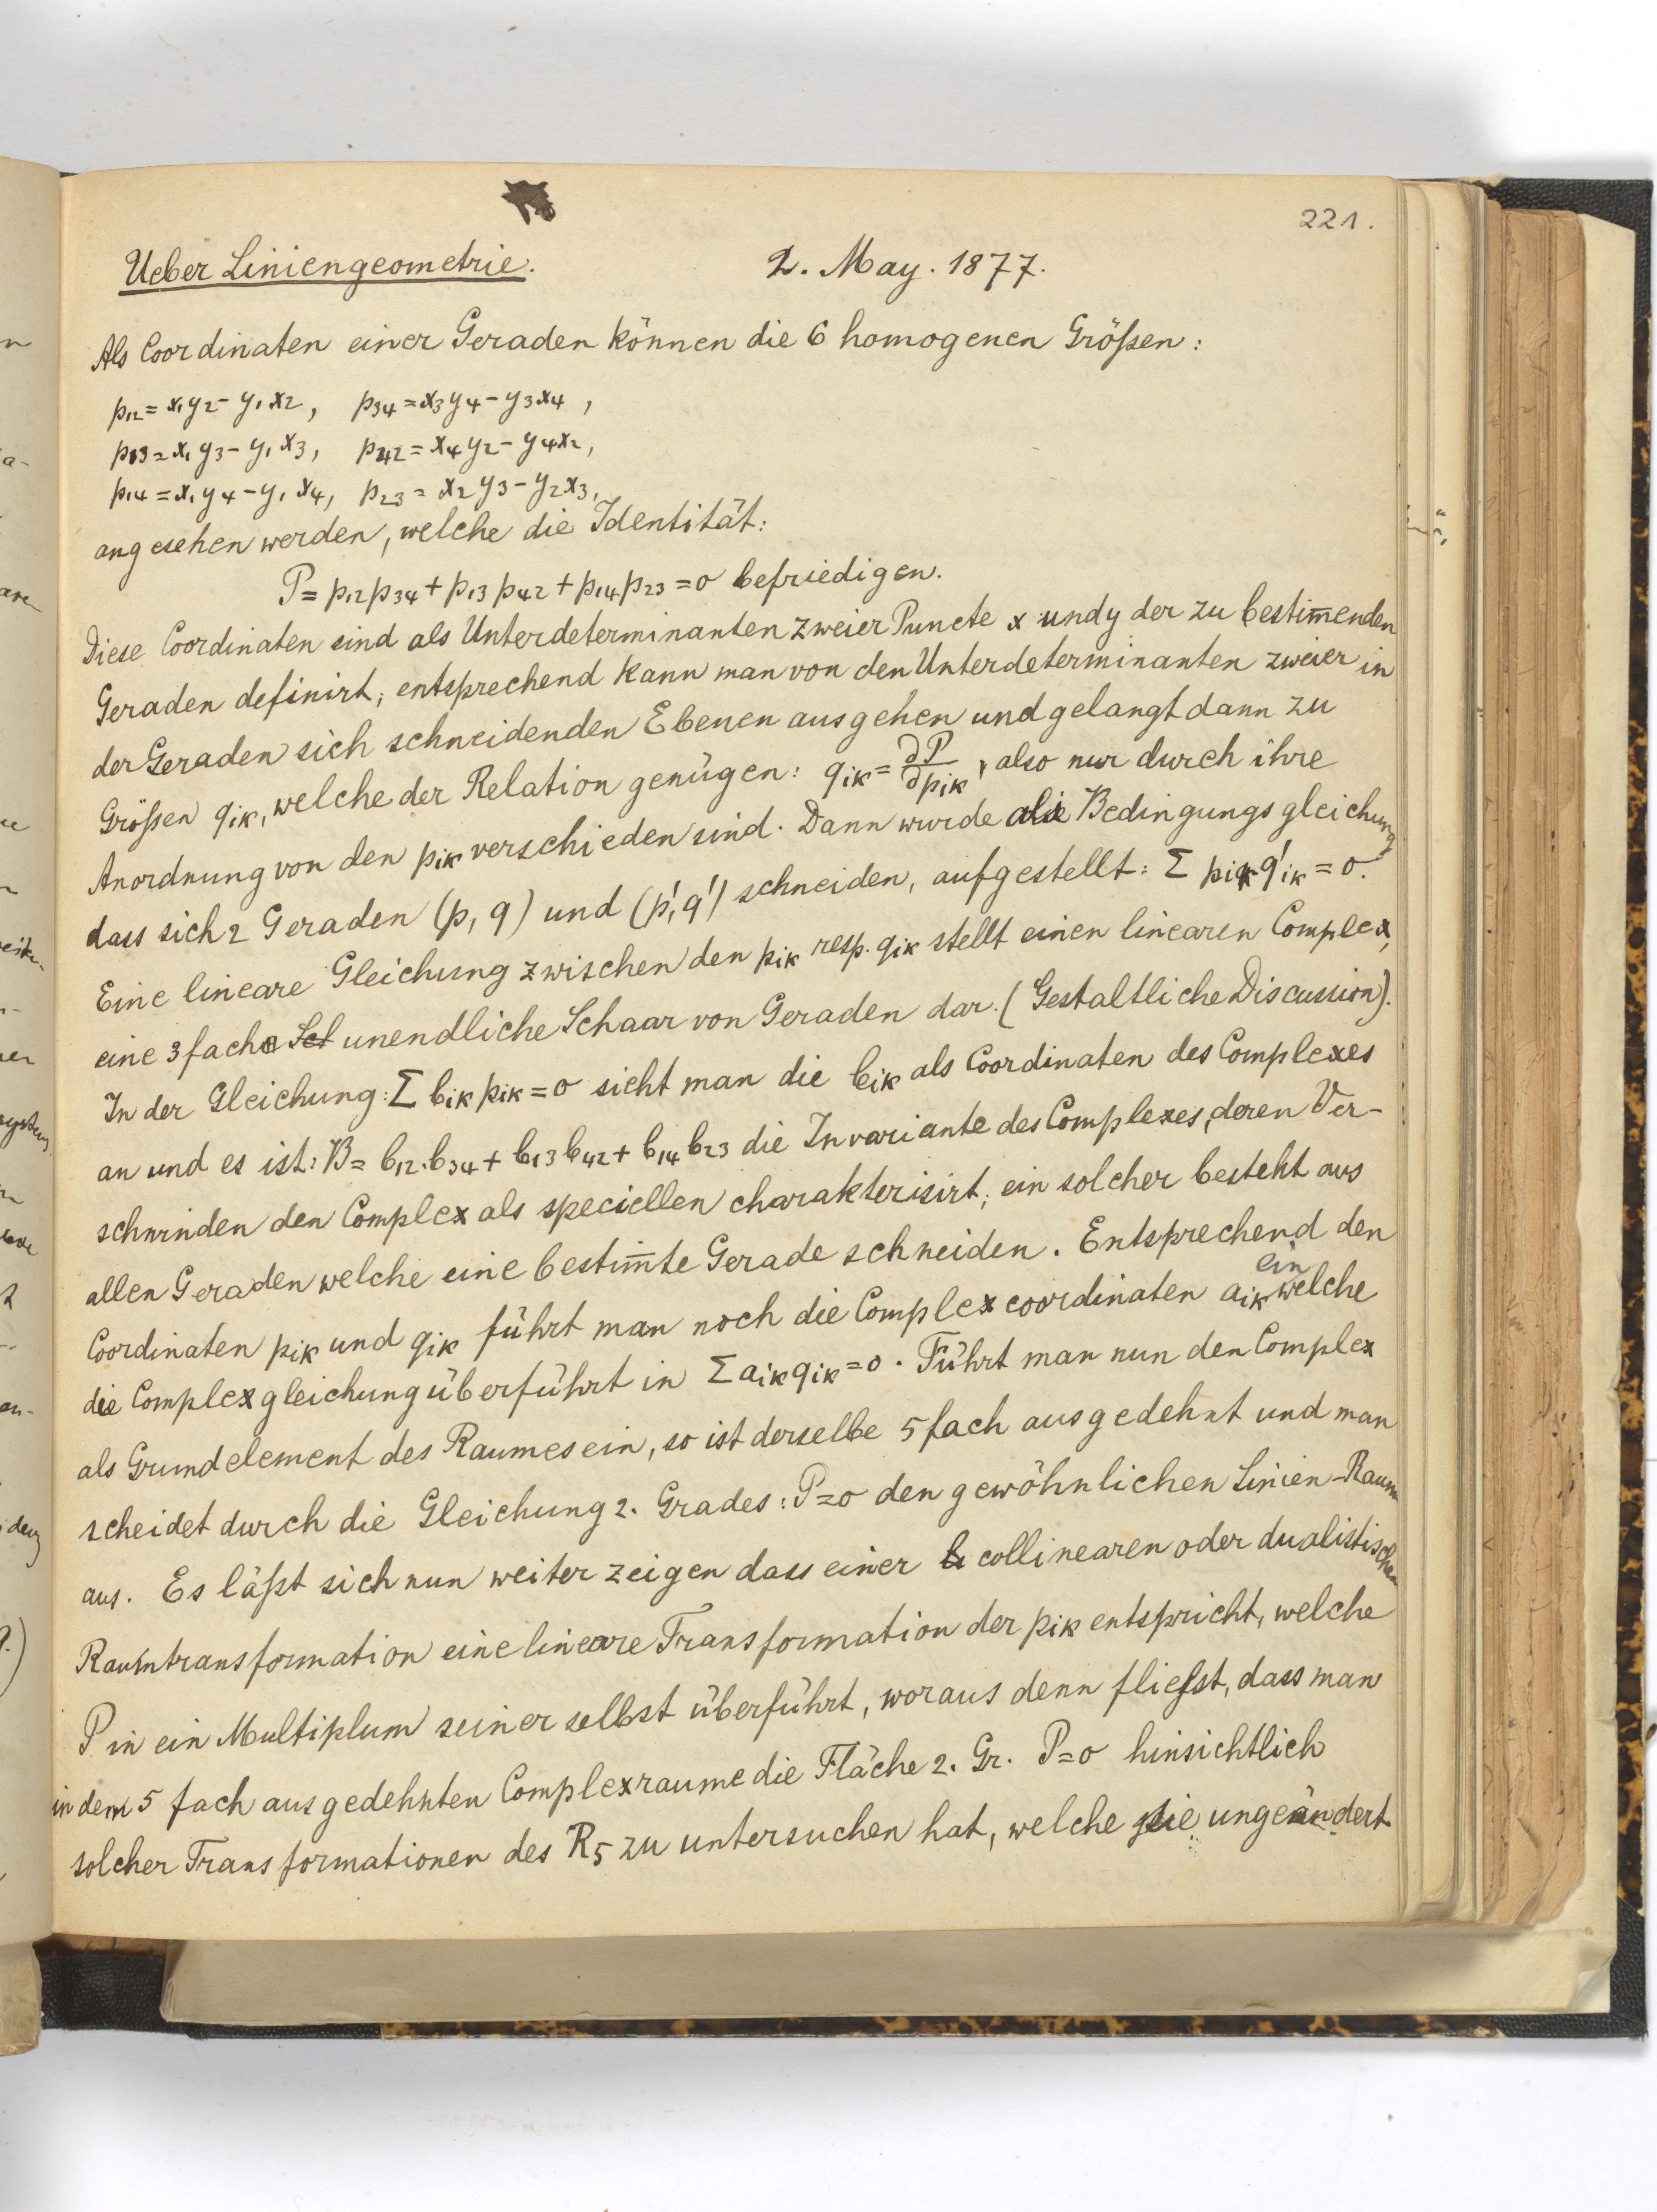 221.
Ueber Liniengeometrie. 2. May. 1877.
Als Coordinaten einer Geraden können die 6 homogenen Größen:
p₁₂ = x₁y₂ - y₁x₂, p₃₄ = x₃y₄ - y₃x₄,
p₁₃ = x₁y₃ - y₁x₃, p₄₂ = x₄y₂ - y₄x₂,
p₁₄ = x₁y₄ - y₁x₄, p₂₃ = x₂y₃ - y₂x₃,
angesehen werden, welche die Identität:
P = p₁₂p₃₄ + p₁₃p₄₂ + p₁₄p₂₃ = 0 befriedigen.
Diese Coordinaten sind als Unterdeterminanten zweier Puncte x und y der zu bestim̅enden
Geraden definirt; entsprechend kann man von den Unterdeterminanten zweier in
der Geraden sich schneidenden Ebenen ausgehen und gelangt dann zu
Größen qik, welche der Relation genügen: qik = ∂P/∂pik, also nur durch ihre
Anordnung von den pik verschieden sind. Dann wurde die Bedingungsgleichung
dass sich 2 Geraden (p, q) und (p', q') schneiden, aufgestellt: Σ pik q'ik = 0.
Eine lineare Gleichung zwischen den pik resp. qik stellt einen linearen Complex,
eine 3fache Sch unendliche Schaar von Geraden dar. (Gestaltliche Discussion).
In der Gleichung: Σ bik pik = 0 sieht man die bik als Coordinaten des Complexes
an und es ist: B = b₁₂.b₃₄ + b₁₃b₄₂ + b₁₄b₂₃ die Invariante des Complexes, deren Ver-
schwinden den Complex als speciellen charakterisirt; ein solcher besteht aus
allen Geraden welche eine bestim̅te Gerade schneiden. Entsprechend den
Coordinaten pik und qik führt man noch die Complexcoordinaten aik ein welche
die Complexgleichung überführt in Σ aik qik = 0. Führt man nun den Complex
als Grundelement des Raumes ein, so ist derselbe 5fach ausgedehnt und man
scheidet durch die Gleichung 2. Grades: P=0 den gewöhnlichen Linien-Raum
aus. Es läßt sich nun weiter zeigen dass einer collinearen oder dualistischen
Raumtransformation eine lineare Transformation der pik entspricht, welche
P in ein Multiplum seiner selbst überführt, woraus denn fließt, dass man
in dem 5 fach ausgedehnten Complexraume die Fläche 2. Gr. P=0 hinsichtlich
solcher Transformationen des R₅ zu untersuchen hat, welche sie ungeändert